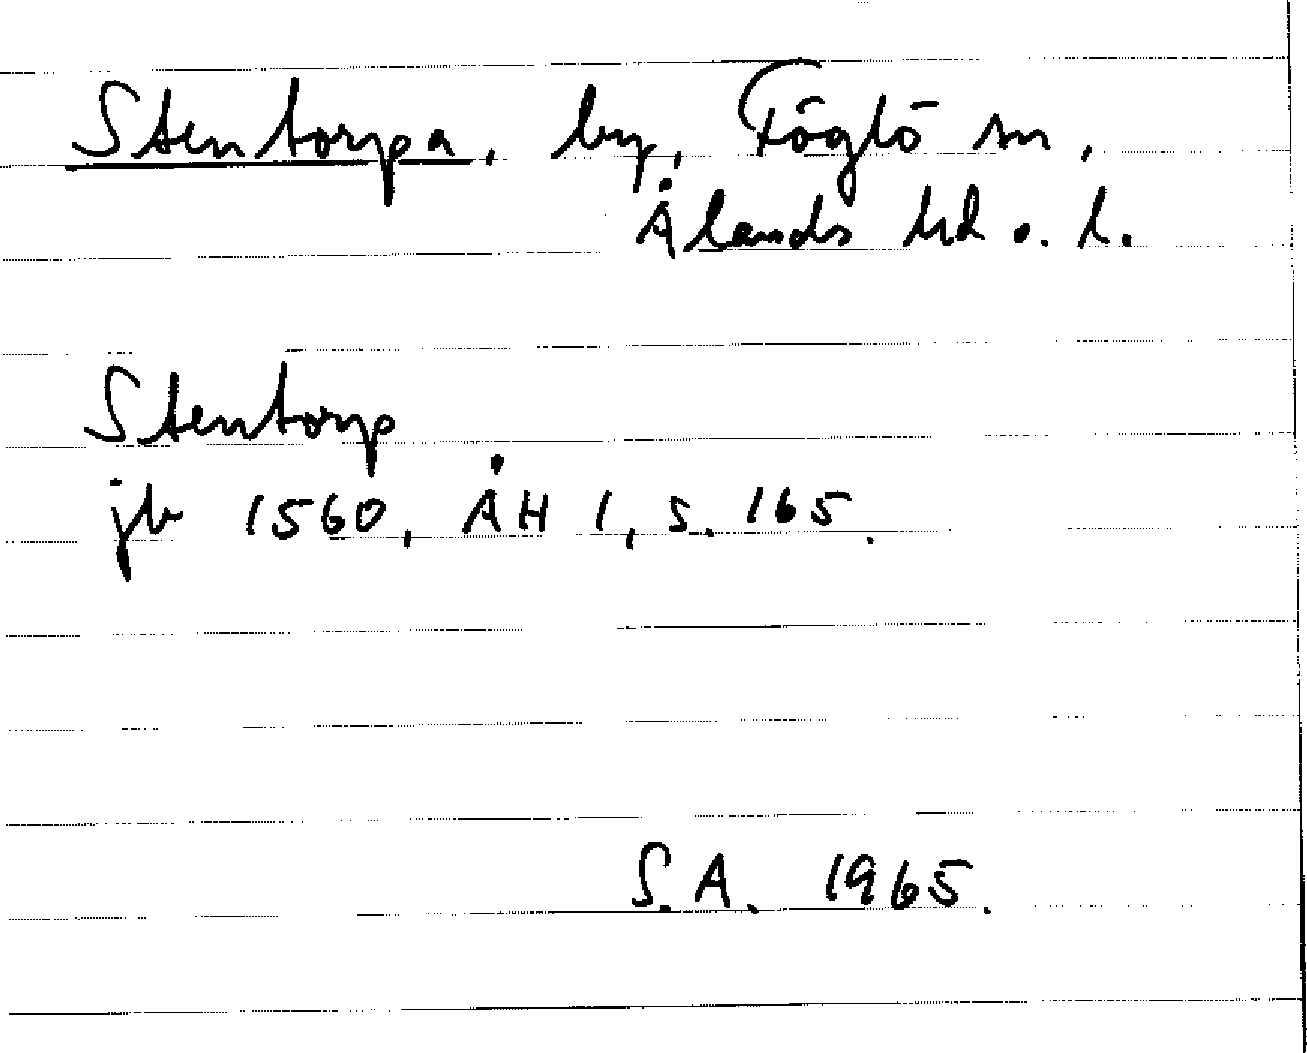 Stentorpa, by, Föglö sn,
Ålands hd o. l.
Stentorp
jb 1560, ÅH 1, s. 165.
S.A. 1965.